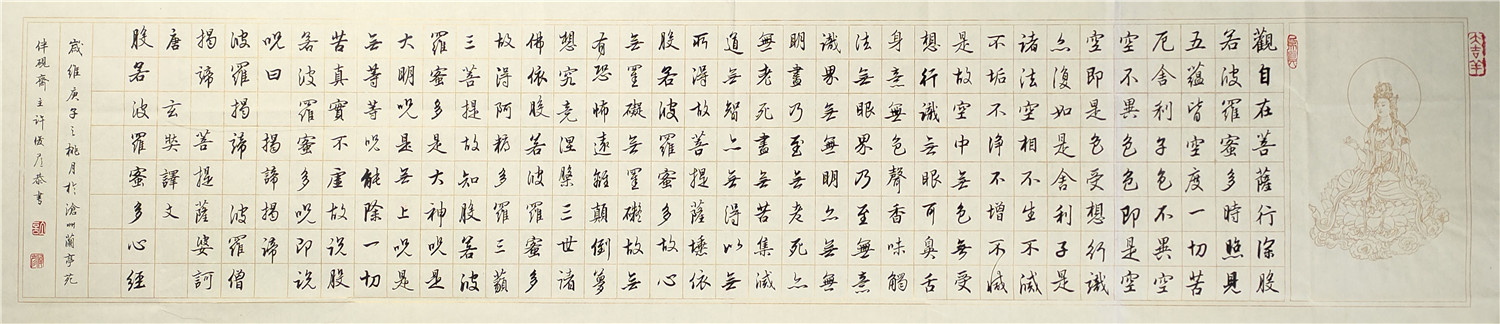 大吉羊
觀自在菩薩行深般
若波羅蜜多時照見
五蘊皆空度一切苦
厄舍利子色不異空
空不異色色即是空
空即是色受想行識
亦復如是舍利子是
諸法空相不生不滅
不垢不淨不增不減
是故空中無色無受
想行識無眼耳鼻舌
身意無色聲香味觸
法無眼界乃至無意
識界無無明亦無無
明盡乃至無老死亦
無老死盡無苦集滅
道無智亦無得以無
所得故菩提薩埵依
般若波羅蜜多故心
無罣礙無罣礙故無
有恐怖遠離顛倒夢
想究竟涅槃三世諸
佛依般若波羅蜜多
故得阿耨多羅三藐
三菩提故知般若波
羅蜜多是大神呪是
大明呪是無上呪是
無等等呪能除一切
苦真實不虛故說般
若波羅蜜多呪即說
呪曰 揭諦揭諦
波羅揭諦 波羅僧
揭諦 菩提薩婆訶
唐玄奘譯文
般若波羅蜜多心經
歲維庚子之桃月於滄州蘭亭苑
伴硯齋主许俊彦恭書